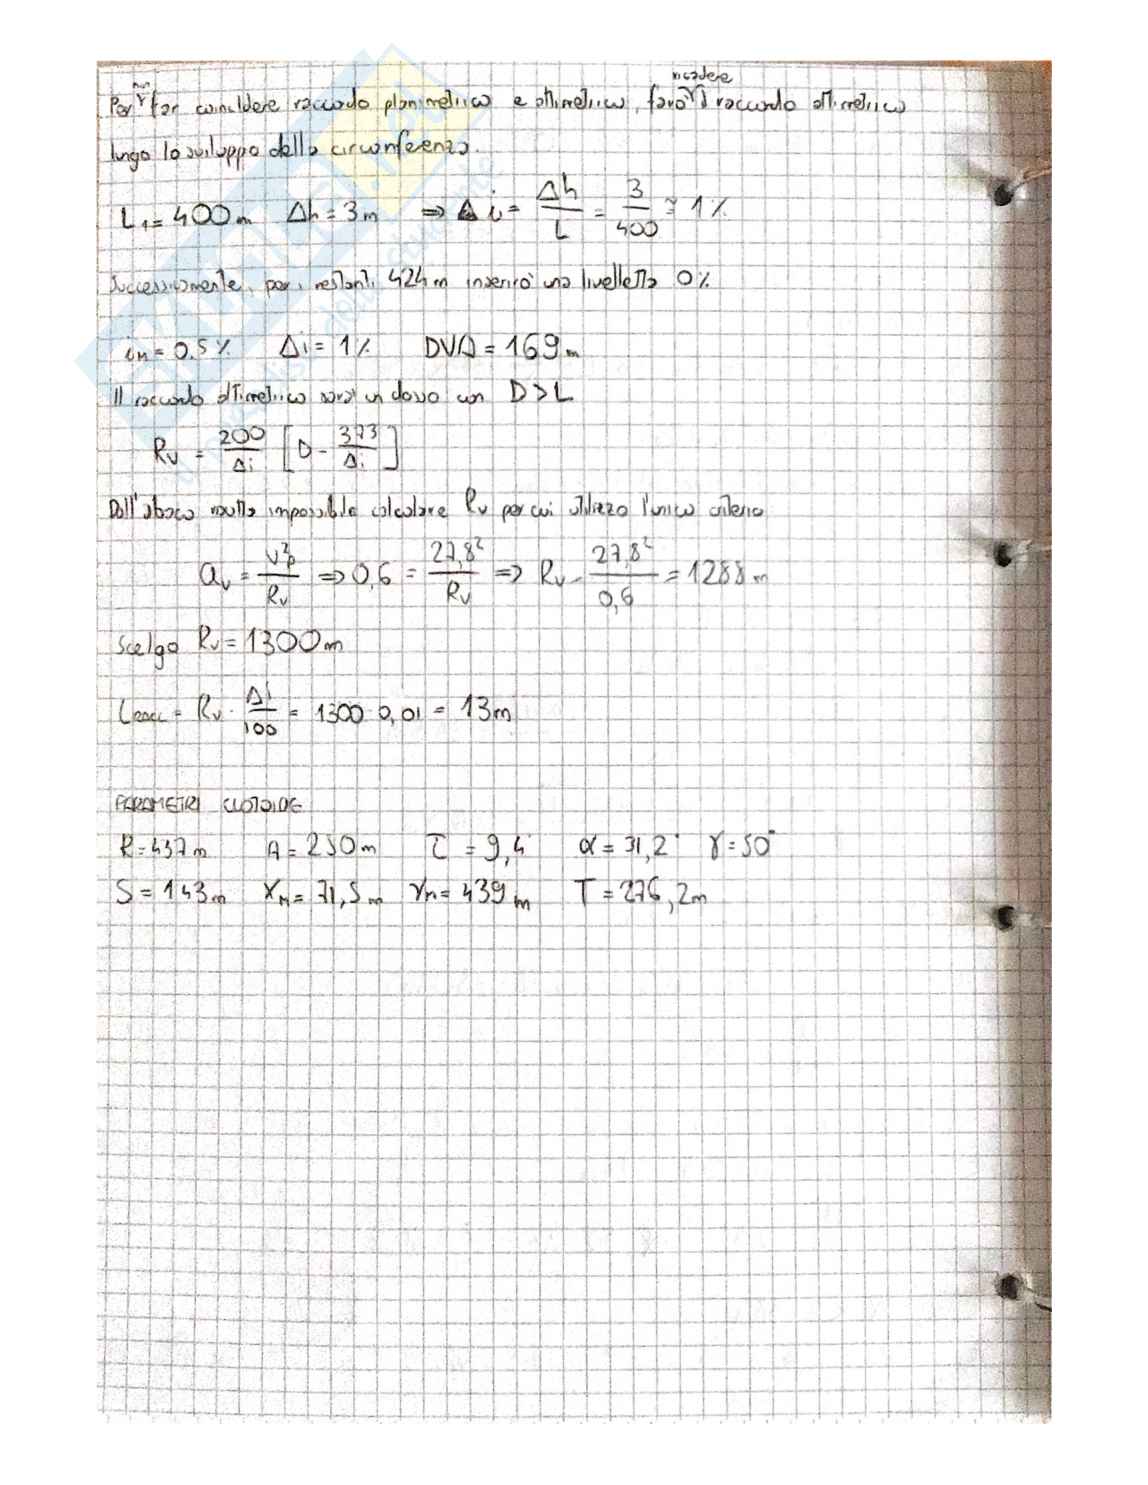 Per non far coincidere raccordo planimetrico e altimetrico, farò ricadere il raccordo altimetrico
lungo lo sviluppo della circonferenza.
L₁ = 400 m Δh = 3 m ⇒ Δi = Δh/L = 3/400 ≅ 1 %
Successivamente, per i restanti 424 m inserirò una livelletta 0 %
im = 0.5 % Δi = 1 % DVA = 169 m
Il raccordo altimetrico sarà un dosso con D > L
Rv = 200/Δi [D - 373/Δi]
Dall'abaco risulta impossibile calcolare Rv per cui utilizzo l'unico criterio
av = v²p/Rv ⇒ 0,6 = 27,8²/Rv ⇒ Rv = 27,8²/0,6 = 1288 m
Scelgo Rv = 1300 m
Lracc = Rv · Δi/100 = 1300 · 0,01 = 13 m
PARAMETRI CLOTOIDE
R = 437 m A = 250 m τ = 9,4° α = 31,2° γ = 50°
S = 143 m Xm = 71,5 m Ym = 439 m T = 276,2 m